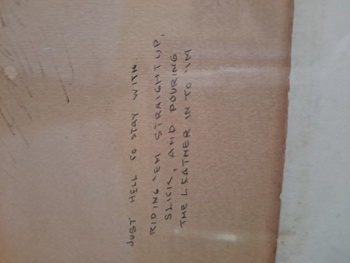 JUST HELL TO STAY WITH
RIDING 'EM STRAIGHT UP,
SLICK, AND POURING
THE LEATHER IN TO 'EM